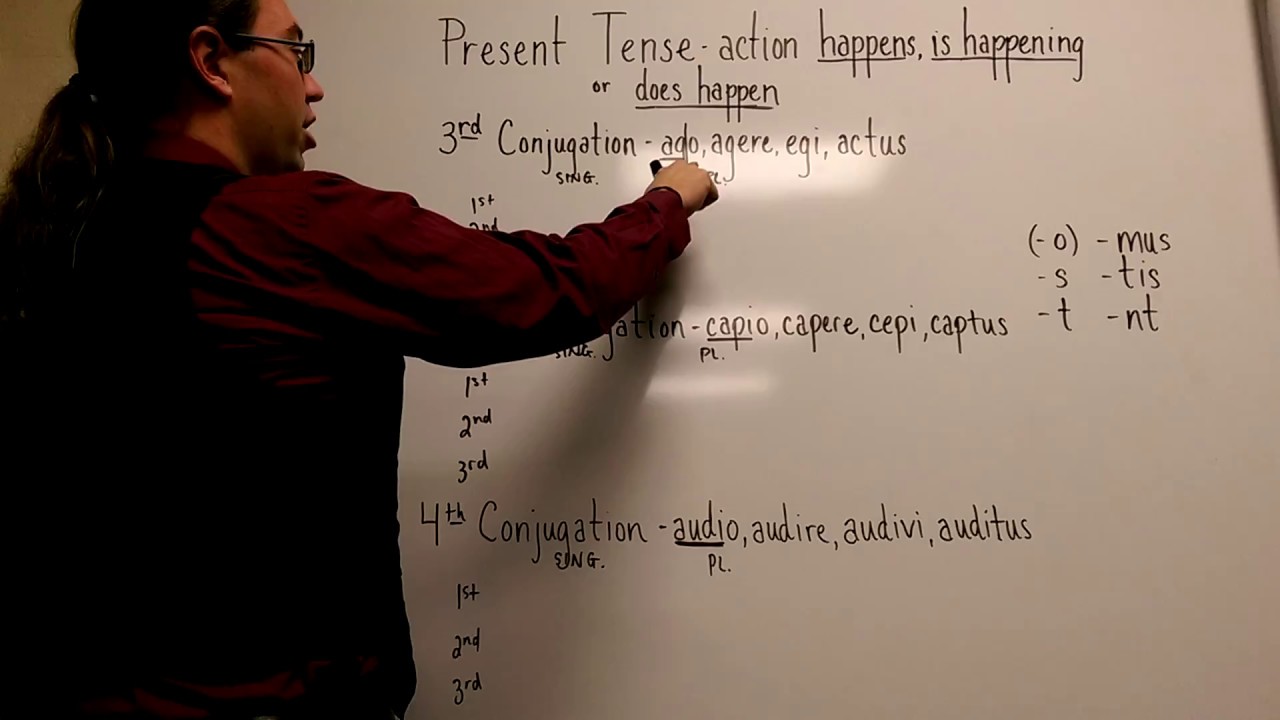 Present Tense - action happens, is happening
or does happen
3rd Conjugation - ago, agere, egi, actus
SING. PL.
1st
2nd
(-o) -mus
-s -tis
-t -nt
gation - capio, capere, cepi, captus
SING. PL.
1st
2nd
3rd
4th Conjugation - audio, audire, audivi, auditus
SING. PL.
1st
2nd
3rd